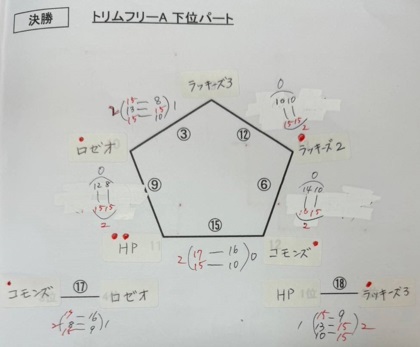 決勝 トリムフリーA 下位パート
ラッキーズ3
2 15 － 8 1
13 － 15
15 － 10
0
10 10
15 15
2
③ ⑫
ロゼオ ラッキーズ2
0
12 8
15 15
2
⑨ ⑥
0
14 10
16 15
2
⑮
HP コモンズ
2 17 － 16 0
15 － 10
コモンズ ⑰ ロゼオ
HP ⑱ ラッキーズ3
2 15 － 16 1
8
15 － 9
1 15 － 9 2
13 － 15
10 － 15